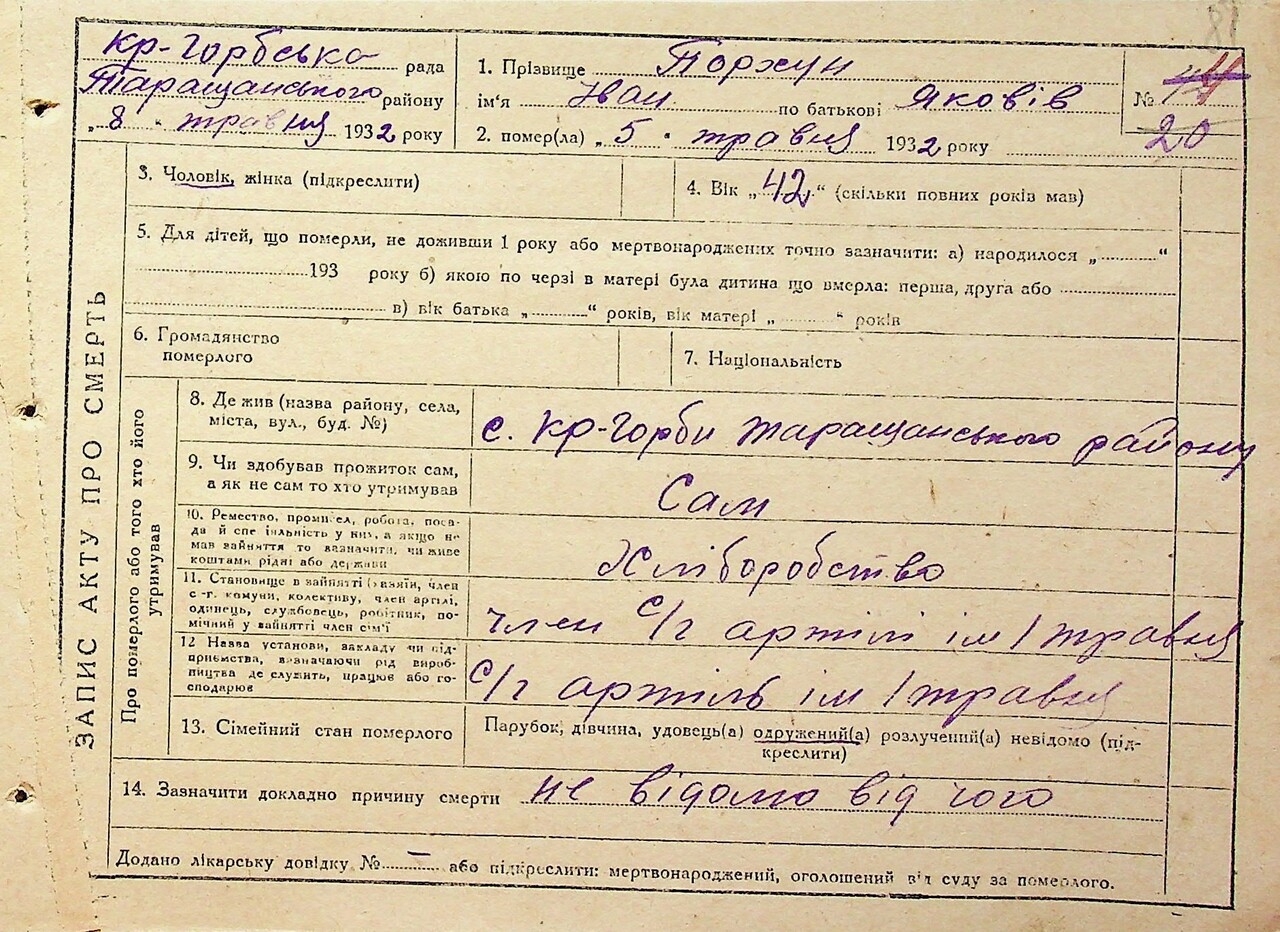 87
кр-Горбська рада
Таращанського району
„ 8 " травня 1932 року
1. Прізвище Поржун
ім'я Іван по батькові Яковів
2. помер(ла) „ 5 " травня 1932 року
№
20
ЗАПИС АКТУ ПРО СМЕРТЬ
3. Чоловік, жінка (підкреслити)
4. Вік „ 42 " (скільки повних років мав)
5. Для дітей, що померли, не доживши 1 року або мертвонароджених точно зазначити: а) народилося „ "
193 року б) якою по черзі в матері була дитина що вмерла: перша, друга або
в) вік батька „ " років, вік матері „ " років
6. Громадянство
померлого
7. Національність
Про померлого або того хто його
утримував
8. Де жив (назва району, села,
міста, вул., буд. №)
с. кр-Горби таращанського району
9. Чи здобував прожиток сам,
а як не сам то хто утримував
Сам
10. Ремество, промисел, робота, поса-
да й спеціяльність у них, а якщо не
мав зайняття то зазначити, чи живе
коштами рідні або держави
Хліборобство
11. Становище в зайнятті (хазяїн, член
с.-г. комуни, колективу, член артілі,
одинець, службовець, робітник, по-
мічний у зайнятті член сім'ї
член с/г артілі ім 1 травня
12 Назва установи, закладу чи під-
приємства, зазначаючи рід вироб-
ництва де служить, працює або го-
сподарює
с/г артіль ім 1 травня
13. Сімейний стан померлого
Парубок, дівчина, удовець(а) одружений(а) розлучений(а) невідомо (під-
креслити)
14. Зазначити докладно причину смерти не відомо від чого
Додано лікарську довідку № — або підкреслити: мертвонароджений, оголошений від суду за померлого.